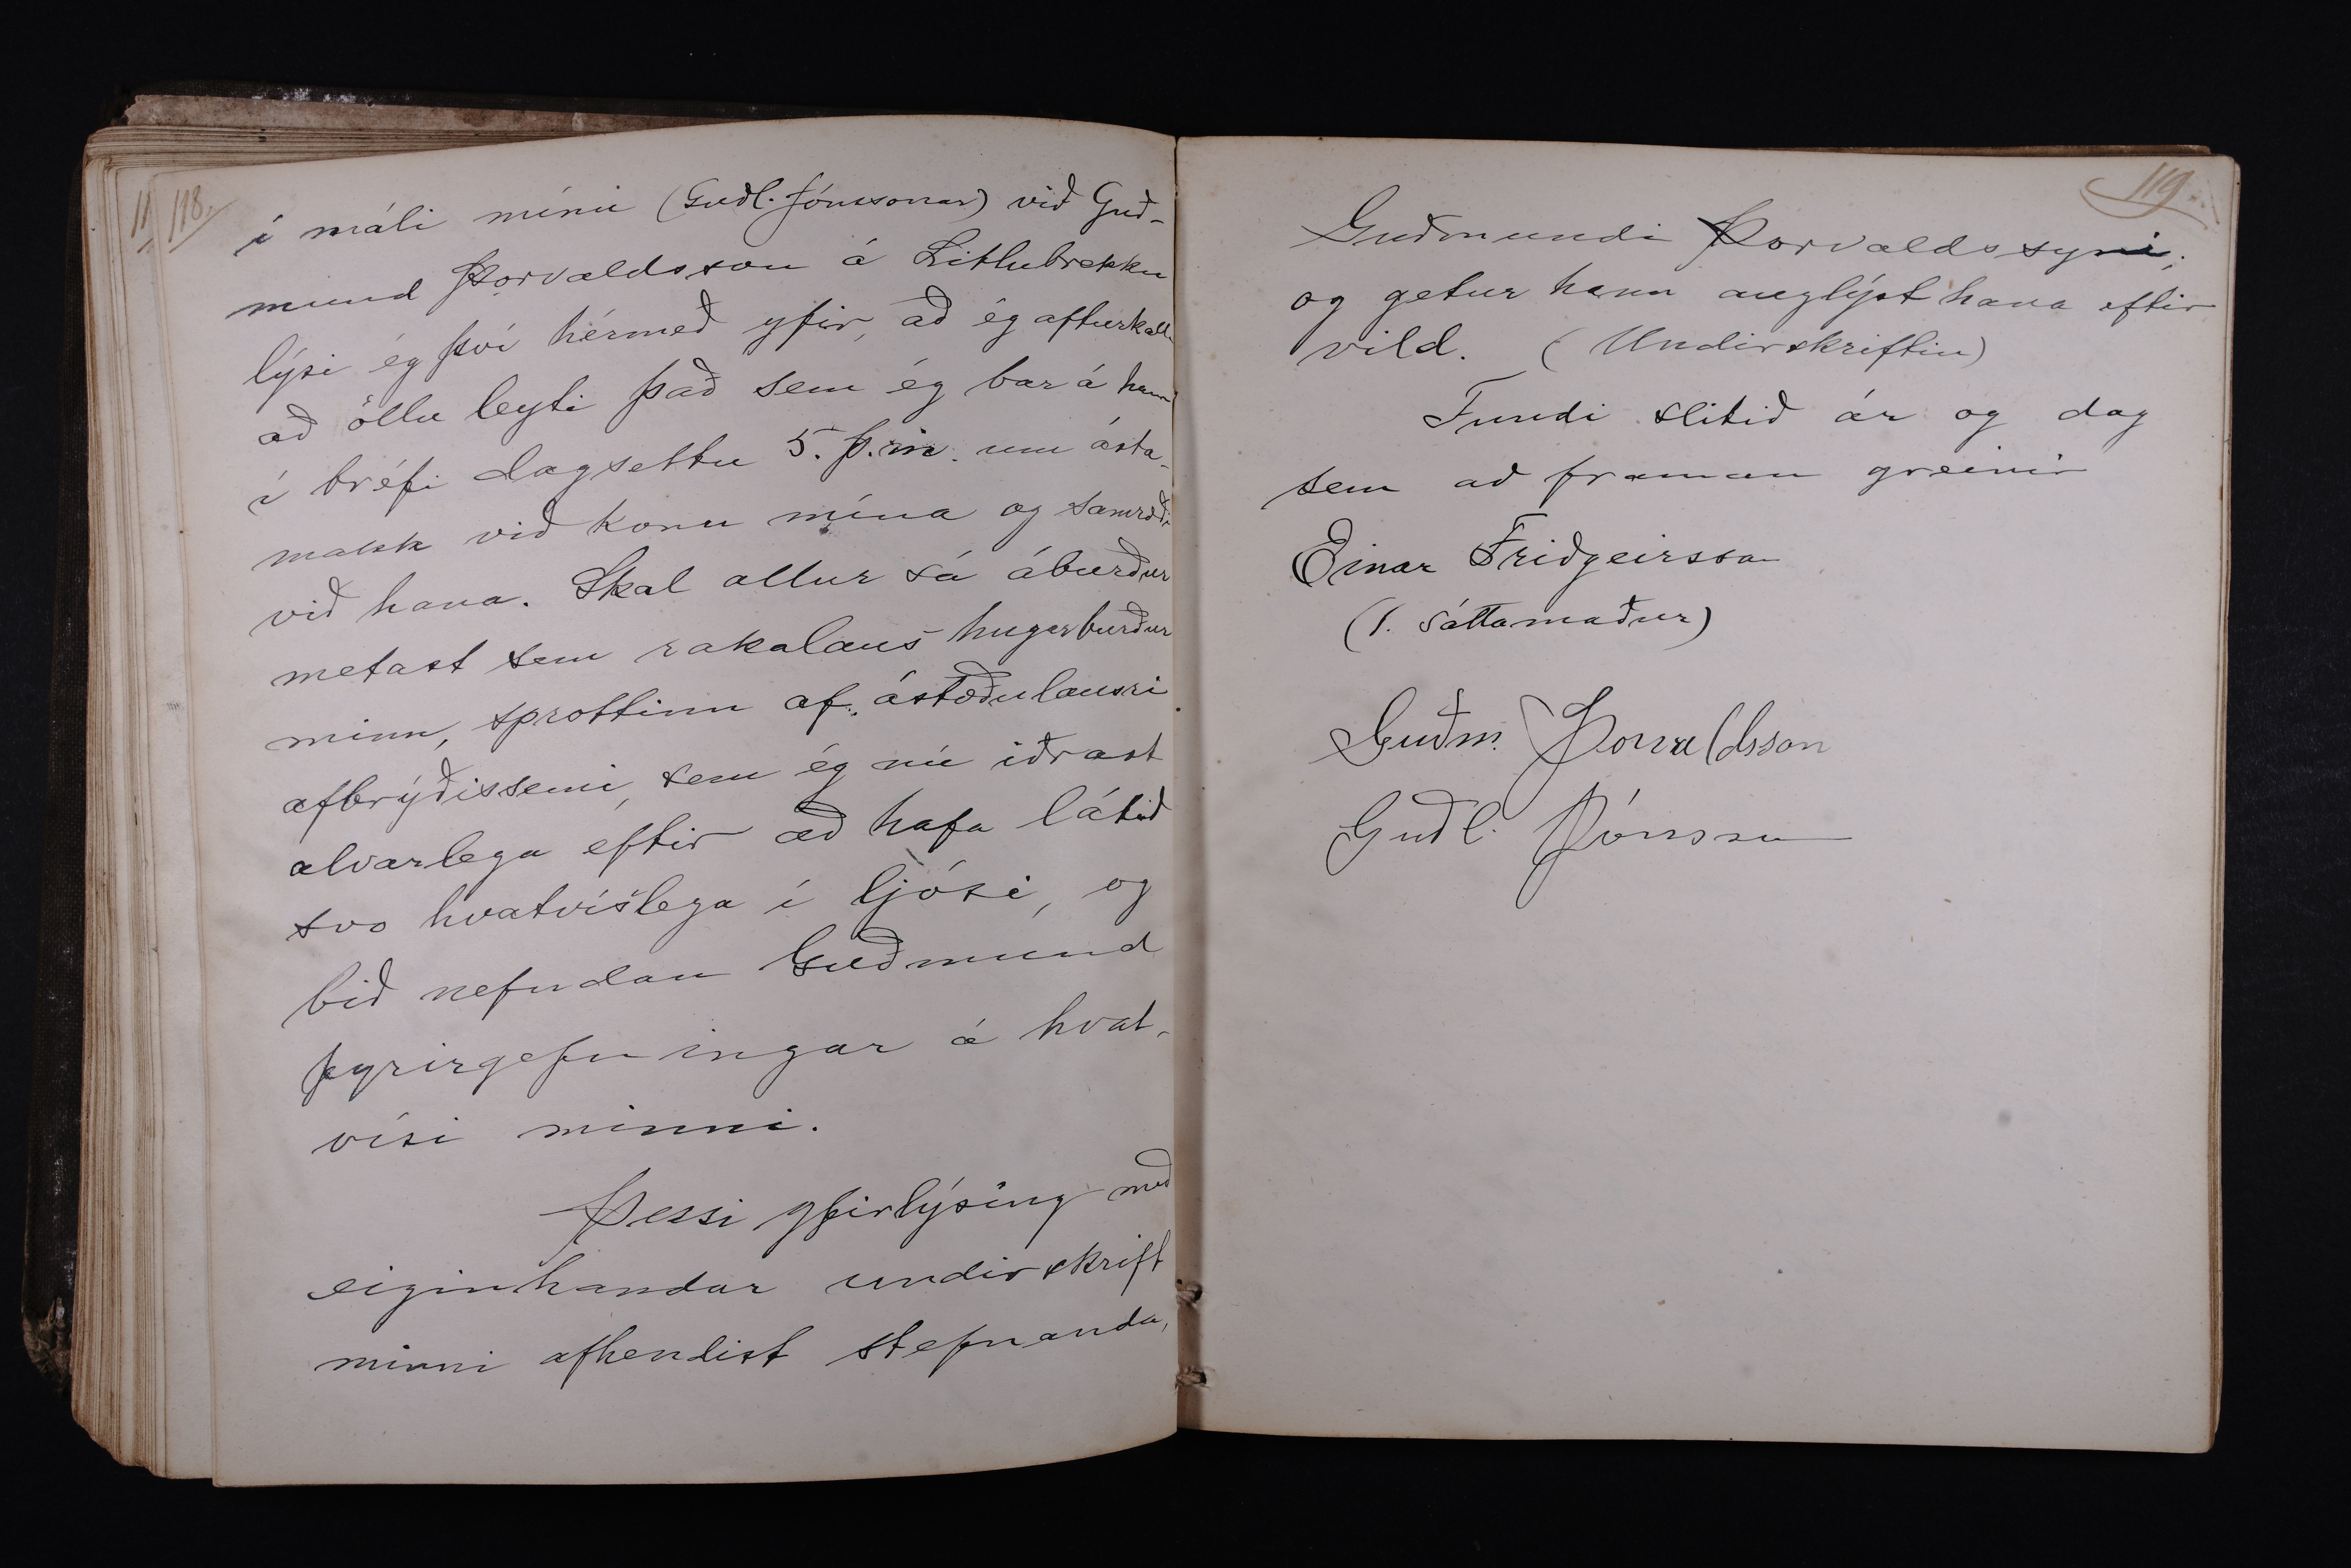 118.
í máli mínu (Guðl. Jónssonar) við Guð-
mund Þorvaldsson á Litlubrekku
lýsi ég því hérmeð yfir, að ég afturkalla
að öllu leyti það sem ég bar á hann
í bréfi dagsettu 5. þ.m. um ásta-
makk við konu mína og samræði
við hana. Skal allur sá áburður
metast sem rakalaus hugarburður
minn, sprottinn af ástæðulausri
afbrýðissemi, sem ég nú iðrast
alvarlega eftir að hafa látið
svo hvatvíslega í ljósi, og
bið nefndan Guðmund
fyrirgefningar á hvat-
vísi minni.
Þessi yfirlýsing með
eiginhandar undirskrift
minni afhendist stefnanda,
119.
Guðmundi Þorvaldssyni,
og getur hann auglýst hana eftir
vild. (Undirskriftin)
Fundi slitið ár og dag
sem að framan greinir
Einar Friðgeirsson
(1. sáttamaður)
Guðm. Þorvaldsson
Guðl. Jónsson